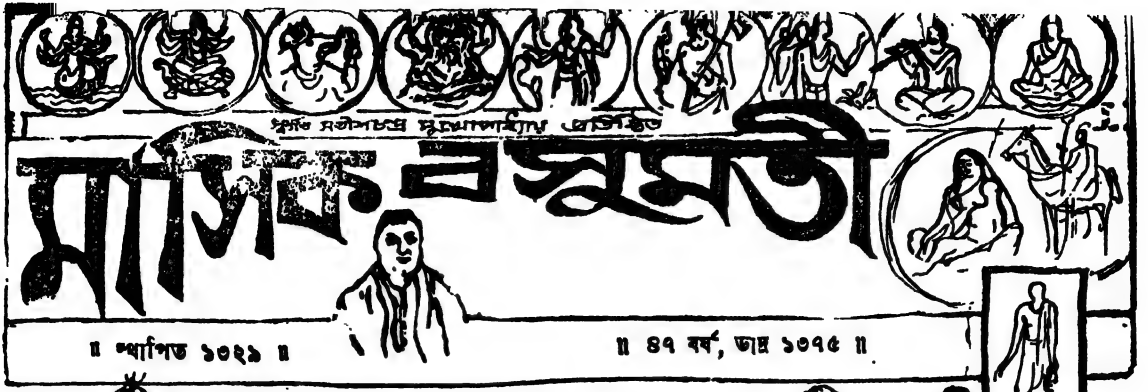 স্বর্গত সতীশচন্দ্র মুখোপাধ্যায় প্রতিষ্ঠিত
মাসিক বসুমতী
॥ স্থাপিত ১৩২৯ ॥
॥ ৪৭ বর্ষ, ভাদ্র ১৩৭৫ ॥